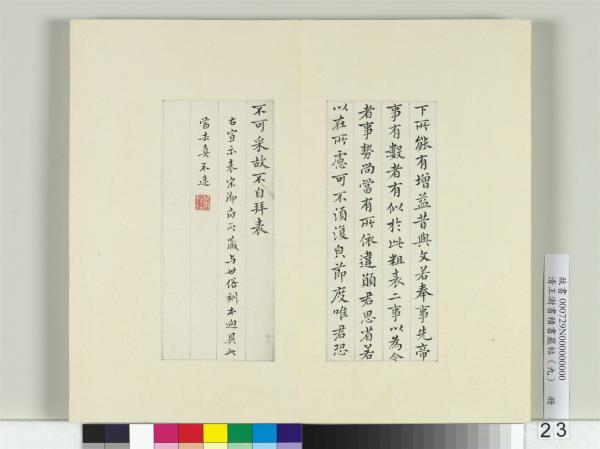 下所能有增益昔與文若奉事先帝
事有數者有似於此粗表二事以為今
者事勢尚當有所依違願君思省若
以在所慮可不須復白節度唯君恐
不可采故不自拜表
右宣示表宋御府所藏与世俗刻本迥異此
當去真不遠
故書 000729N000000000
清王澍書積書巖帖(九) 冊
23